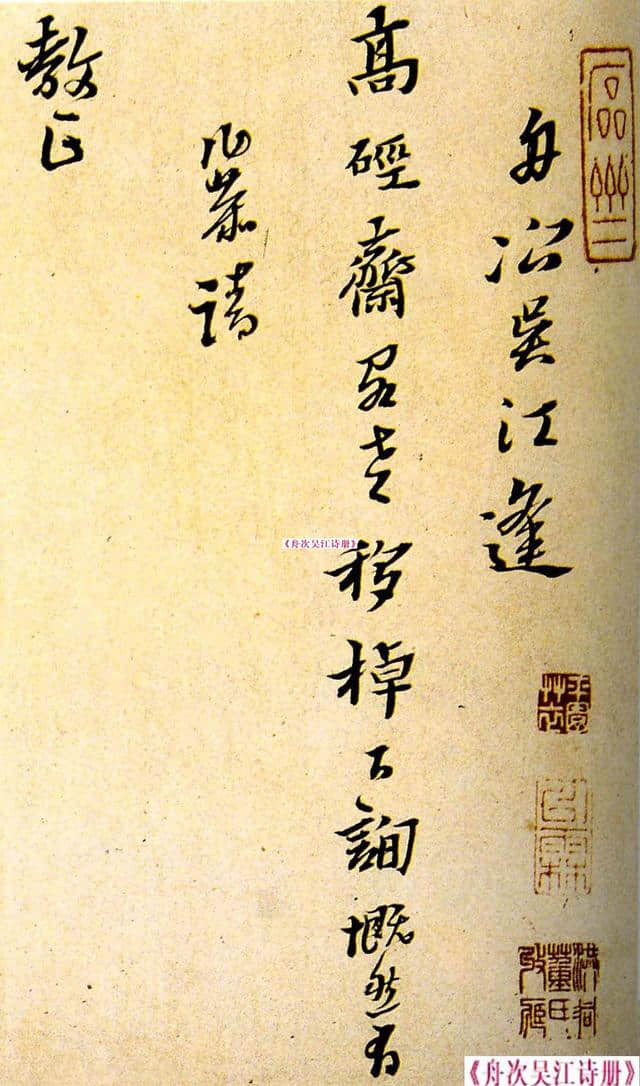 舟次吳江逢
高硜齋老移棹下詢慨然有
作恭請
教正
《舟次吴江诗册》
《舟次吴江诗册》